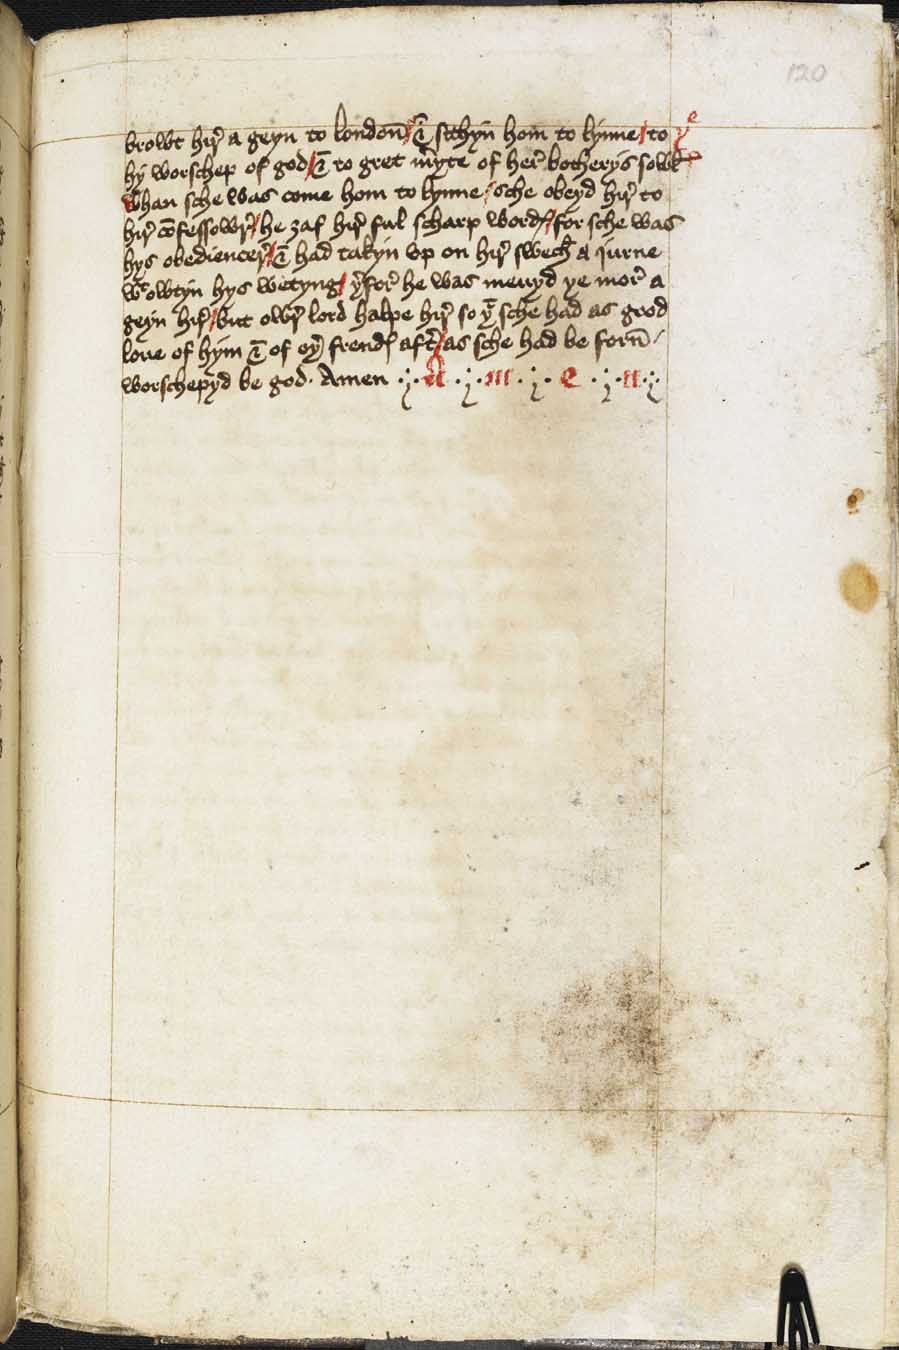 120
browt hir̛ a geyn to london̄ / & sithyn hom to lynne / to yᵉ
hy worschep of god / & to gret mӯte of her̛ botherys sowle
whan sche was come hom to lynne / sche obeyd hir̛ to
hir̛ cōfessowr̛ / he ȝaf hir̛ ful scharp wordꝭ / for sche was
hys obediencer̛ / & had takyn vp on hir̛ swech a jurne
wᵗowtyn hys wetyng / yͤfor̛ he was meuyd ye mor̛ a
geyn hir̛ / but owr̛ lord halpe hir̛ so yᵗ sche had as good
loue of hym & of oyͤ frendꝭ aft̛ / as sche had be forn̄ /
worschepyd be god · Amen · A · M · E · N ·